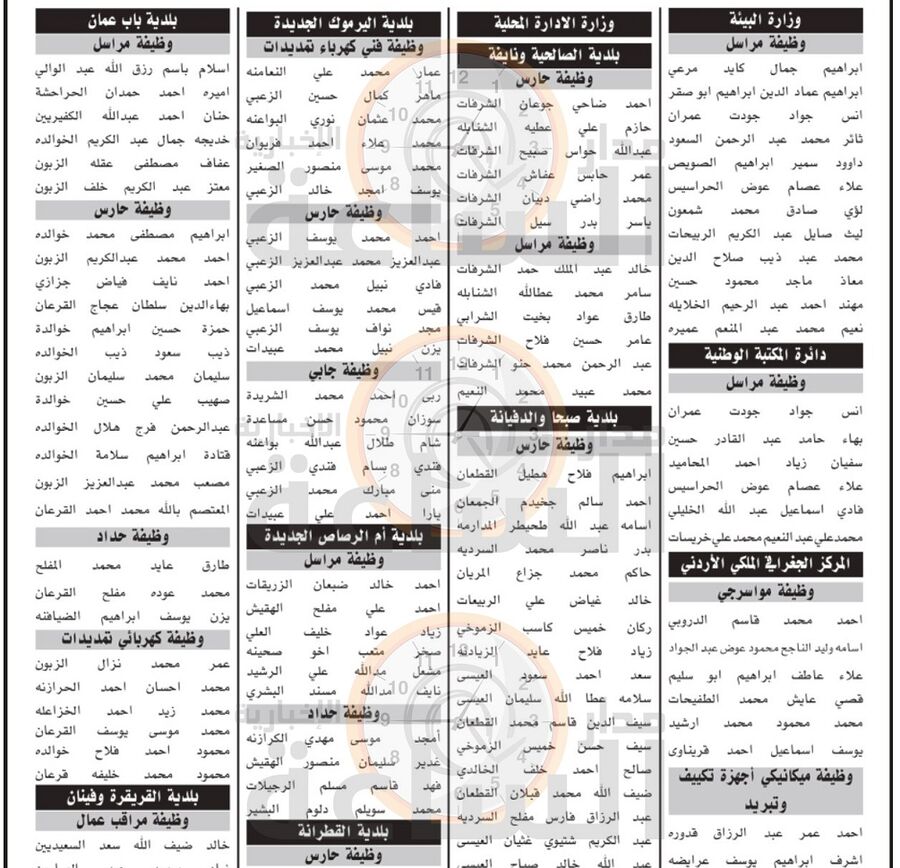 وزارة البيئة
وظيفة مراسل
ابراهيم جمال كايد مرعي
ابراهيم عماد الدين ابراهيم ابو صقر
انس جواد جودت عمران
ثائر محمد عبد الرحمن السعود
داوود سمير ابراهيم الصويص
علاء عصام عوض الحراسيس
لؤي صادق محمد شمعون
ليث صايل عبد الكريم الربيحات
محمد عبد ذيب صلاح الدين
معاذ ماجد محمود حسين
مهند احمد عبد الرحيم الخلايله
نعيم محمد عبد المنعم عميره
دائرة المكتبة الوطنية
وظيفة مراسل
انس جواد جودت عمران
بهاء حامد عبد القادر حسين
سفيان زياد احمد المحاميد
علاء عصام عوض الحراسيس
فادي اسماعيل عبد الله الخليلي
محمدعلي عبد النعيم محمد علي خريسات
المركز الجغرافي الملكي الأردني
وظيفة مواسرجي
احمد محمد قاسم الدروبي
اسامه وليد الناجح محمود عوض عبد الجواد
علاء عاطف ابراهيم ابو سليم
قصي عايش محمد الطفيحات
محمد محمود محمد ارشيد
يوسف اسماعيل احمد قريناوي
وظيفة ميكانيكي أجهزة تكييف
وتبريد
احمد عمر عبد الرزاق قدوره
اشرف ابراهيم يوسف مرايضه
وزارة الادارة المحلية
بلدية الصالحية ونايفة
وظيفة حارس
احمد ضاحي جوعان الشرفات
حازم علي عطيه الشنابله
عبدالله حواس صبيح الشرفات
عمر حابس عفاش الشرفات
محمد راضي دبيان الشرفات
ياسر بدر سيل الشرفات
وظيفة مراسل
خالد عبد الملك حمد الشرفات
سامر محمد عطالله الشنابله
طارق عواد بخيت الشرابي
عامر حسين فلاح الشرفات
عبد الرحمن محمد حنو الشرفات
محمد عبيد محمد النعيم
بلدية صبحا والدفيانة
وظيفة حارس
ابراهيم فلاح هطيل القطعان
احمد سالم جخيدم الجمعان
اسامه عبد الله طحيطر المدارمه
بدر ناصر محمد السرديه
حاكم محمد جزاع المريان
خالد غياض علي الربيعات
ركان خميس كاسب الزموخي
زياد فلاح عايد الزيادنه
سعد احمد سعود العيسى
سلامه عطا الله سليمان العيسى
سيف الدين قاسم محمد القطعان
سيف حسن خميس الزموخي
صالح احمد خلف الخالدي
ضيف الله محمد قبلان القطعان
عبد الرزاق فارس مفلح السرديه
عبد الكريم شتيوي غثيان العيسى
عبد الله خالد صباح العيسى
بلدية اليرموك الجديدة
وظيفة فني كهرباء تمديدات
عمار محمد علي النعامنه
ماهر كمال حسين الزعبي
محمد عثمان نوري البواعنه
محمد علاء احمد فريوان
محمد موسى منصور الصغير
يوسف امجد خالد الزعبي
وظيفة حارس
احمد محمد يوسف الزعبي
عبدالعزيز محمد عبدالعزيز الزعبي
فادي نبيل محمد الزعبي
قيس محمد يوسف اسماعيل
مجد نواف يوسف الزعبي
يزن نبيل محمد عبيدات
وظيفة جابي
ربى احمد محمد الشريدة
سوزان محمود حسن مساعدة
شام طلال عبدالله بواعنه
فندي بسام فندي الزعبي
منى مبارك محمد الزعبي
يارا احمد علي عبيدات
بلدية أم الرصاص الجديدة
وظيفة مراسل
احمد خالد ضبعان الزريقات
احمد علي مفلح الهقيش
زياد عواد خليف العلي
صخر متعب اخو صحينه
مشعل مدالله علي الرشيد
نايف مدالله مسند البشري
وظيفة حداد
أمجد موسى مهدي الكرازنه
غدير سليمان منصور الهقيش
فهد قاسم مسلم الرجيلات
محمد سويلم دلوم البشير
بلدية القطرانة
وظيفة حارس
بلدية باب عمان
وظيفة مراسل
اسلام باسم رزق الله عبد الوالي
اميره احمد حمدان الحراحشة
حنان احمد عبدالله الكفيريين
خديجه جمال عبد الكريم الخوالده
عفاف مصطفى عقله الزبون
معتز عبد الكريم خلف الزبون
وظيفة حارس
ابراهيم مصطفى محمد خوالده
احمد محمد عبدالكريم الزبون
احمد نايف فياض جزازي
بهاءالدين سلطان عجاج القرعان
حمزة حسين ابراهيم خوالدة
ذيب سعود ذيب الخوالده
سليمان محمد سليمان الزبون
صهيب علي حسين خوالدة
عبدالرحمن فرج هلال الخوالده
قتادة ابراهيم سلامة الخوالده
مصعب محمد عبدالعزيز الزبون
المعتصم بالله محمد احمد القرعان
وظيفة حداد
طارق عايد محمد المفلح
محمد عوده مفلح القرعان
يزن يوسف ابراهيم الضيافنه
وظيفة كهربائي تمديدات
عمر محمد نزال الزبون
محمد احسان احمد الحرازنه
محمد زيد احمد الخزاعله
محمد موسى يوسف القرعان
محمود احمد فلاح خوالده
محمود محمد خليفه قرعان
بلدية القريقرة وفينان
وظيفة مراقب عمال
خالد ضيف الله سعد السعيديين